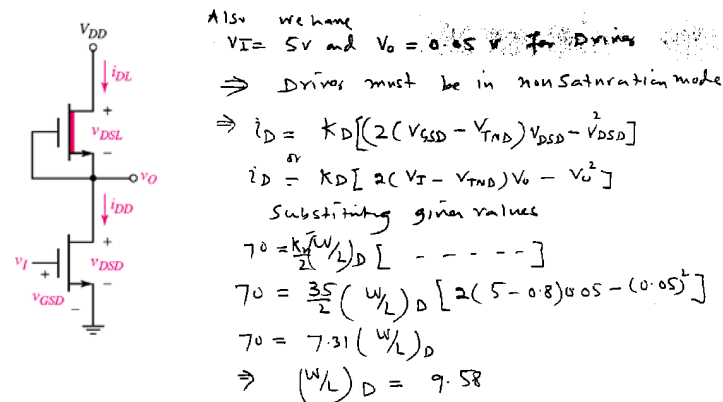 V_DD
i_DL
+
v_DSL
−
v_O
i_DD
+
v_DSD
−
v_I
+
v_GSD
−
Also we have
VI = 5v and Vo = 0.05 v for Driver
⇒ Driver must be in nonSaturation mode
⇒ i_D = K_D[(2(V_GSD − V_TND) V_DSD − V²_DSD]
or
i_D = K_D[ 2(V_I − V_TND) V_o − V_o² ]
Substituting given values
70 = Kn'/2 (W/L)_D [ - - - - - ]
70 = 35/2 (W/L)_D [2(5 − 0.8)0.05 − (0.05)²]
70 = 7.31 (W/L)_D
⇒ (W/L)_D = 9.58